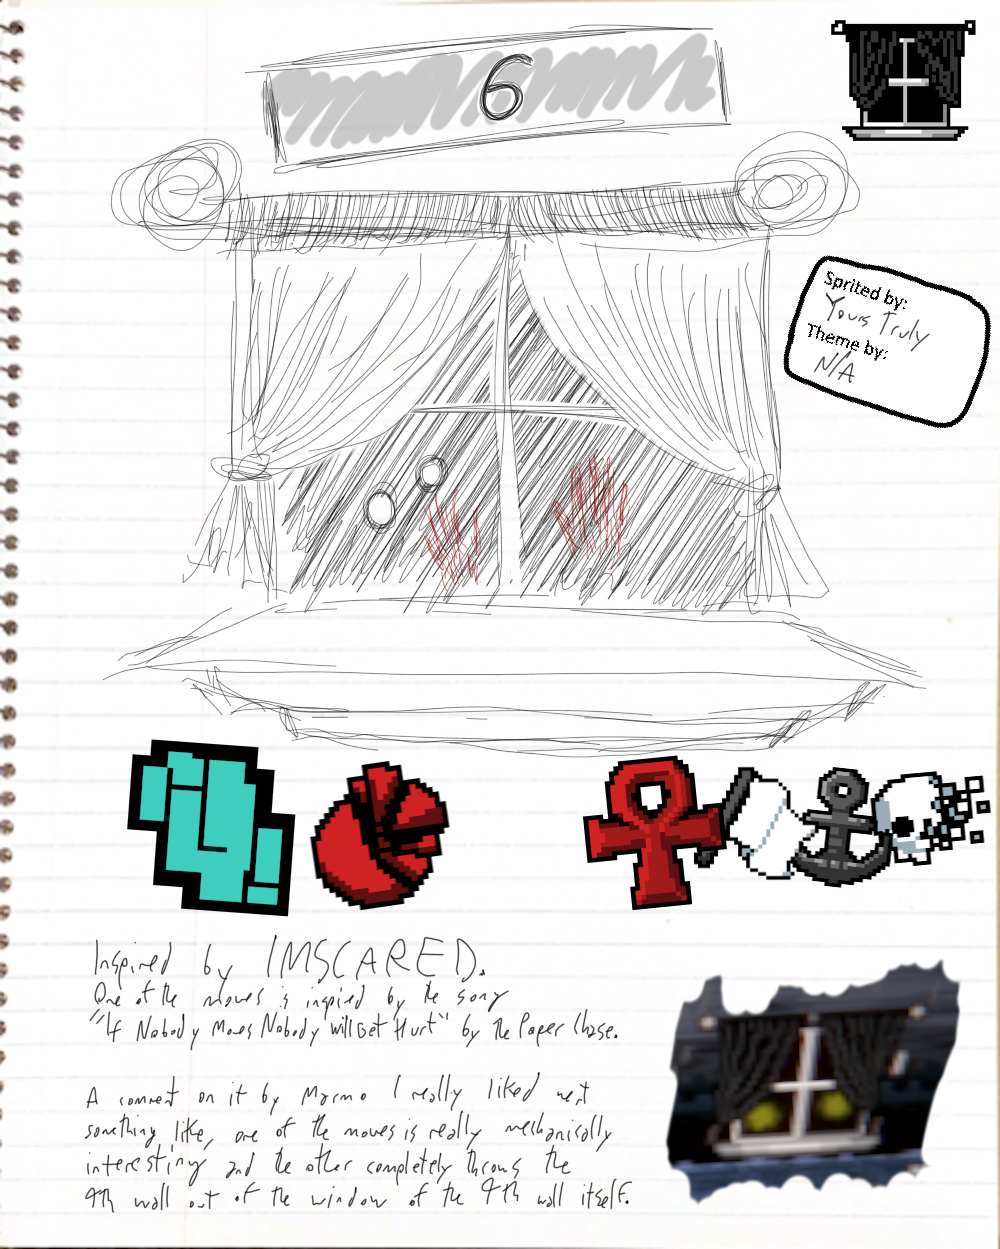 6
Sprited by:
Yours Truly
Theme by:
N/A
Inspired by IMSCARED.
One of the moves is inspired by the song
"If Nobody Moves Nobody Will Get Hurt" by the Paper Chase.
A comment on it by Marmo I really liked went
something like, one of the moves is really mechanically
interesting and the other completely throws the
4th wall out of the window of the 4th wall itself.